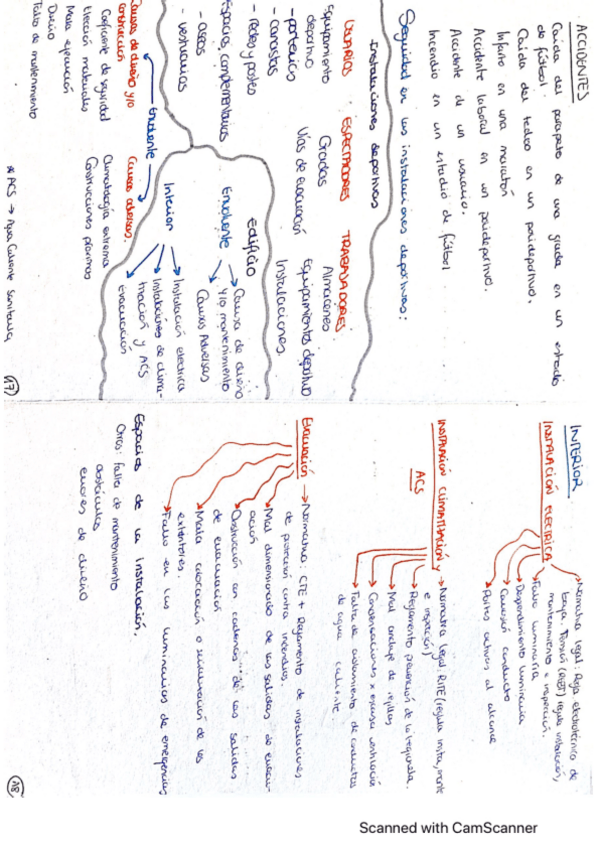 ACCIDENTES
Caída del parapeto de una grada en un estadio
de fútbol.
Caída del techo en un polideportivo.
Infarto en una maratón
Accidente laboral en un polideportivo.
Accidente de un usuario.
Incendio en un estadio de fútbol
Seguridad en las instalaciones deportivas:
Instalaciones deportivas
USUARIOS ESPECTADORES TRABAJADORES
Equipamiento Gradas Almacenes
deportivo Vías de evacuación Equipamientos deportivo
- porterías Instalaciones.
- canastas
- redes y postes
Espacios complementarios
- aseos
- vestuarios
edificio
Envolvente → Causa de diseño
y/o mantenimiento
Causas Adversas
Interior → Instalación eléctrica
Instalaciones de clima-
tización y ACS
Evacuación
Envolvente
Causas de diseño y/o
construcción
Coeficiente de seguridad
Elección materiales
Mala ejecución
Diseño
Falta de mantenimiento
Causas adversas.
Climatología extrema
Construcciones próximas
* ACS → Agua Caliente Sanitaria
17
INTERIOR
INSTALACIÓN ELÉCTRICA
Normativa legal: Regla electrotécnico de
baja Tensión (REBT) regula instalación,
mantenimiento e inspección.
Fallo luminaria
Desprendimiento luminaria
Corrosión conducto
Partes activas al alcance
INSTALACIÓN CLIMATIZACIÓN y → Normativa legal: RITE (regula insta, mante
ACS
e inspección)
Reglamento prevención de la legionela.
Mal anclaje de rejillas
Condensaciones x escasa ventilación
Falta de aislamiento de conductos
de agua caliente.
Evacuación → Normativa: CTE + Reglamento de instalaciones
de protección contra incendios.
Mal dimensionado de las salidas de evacu-
ación
Obstrucción con cadenas de las salidas
de evacuación
Mala colocación o señalización de los
extintores.
Fallo en las luminarias de emergencias
Espacios de la instalación.
Otros: falta de mantenimiento
obstáculos
errores de diseño
18
Scanned with CamScanner